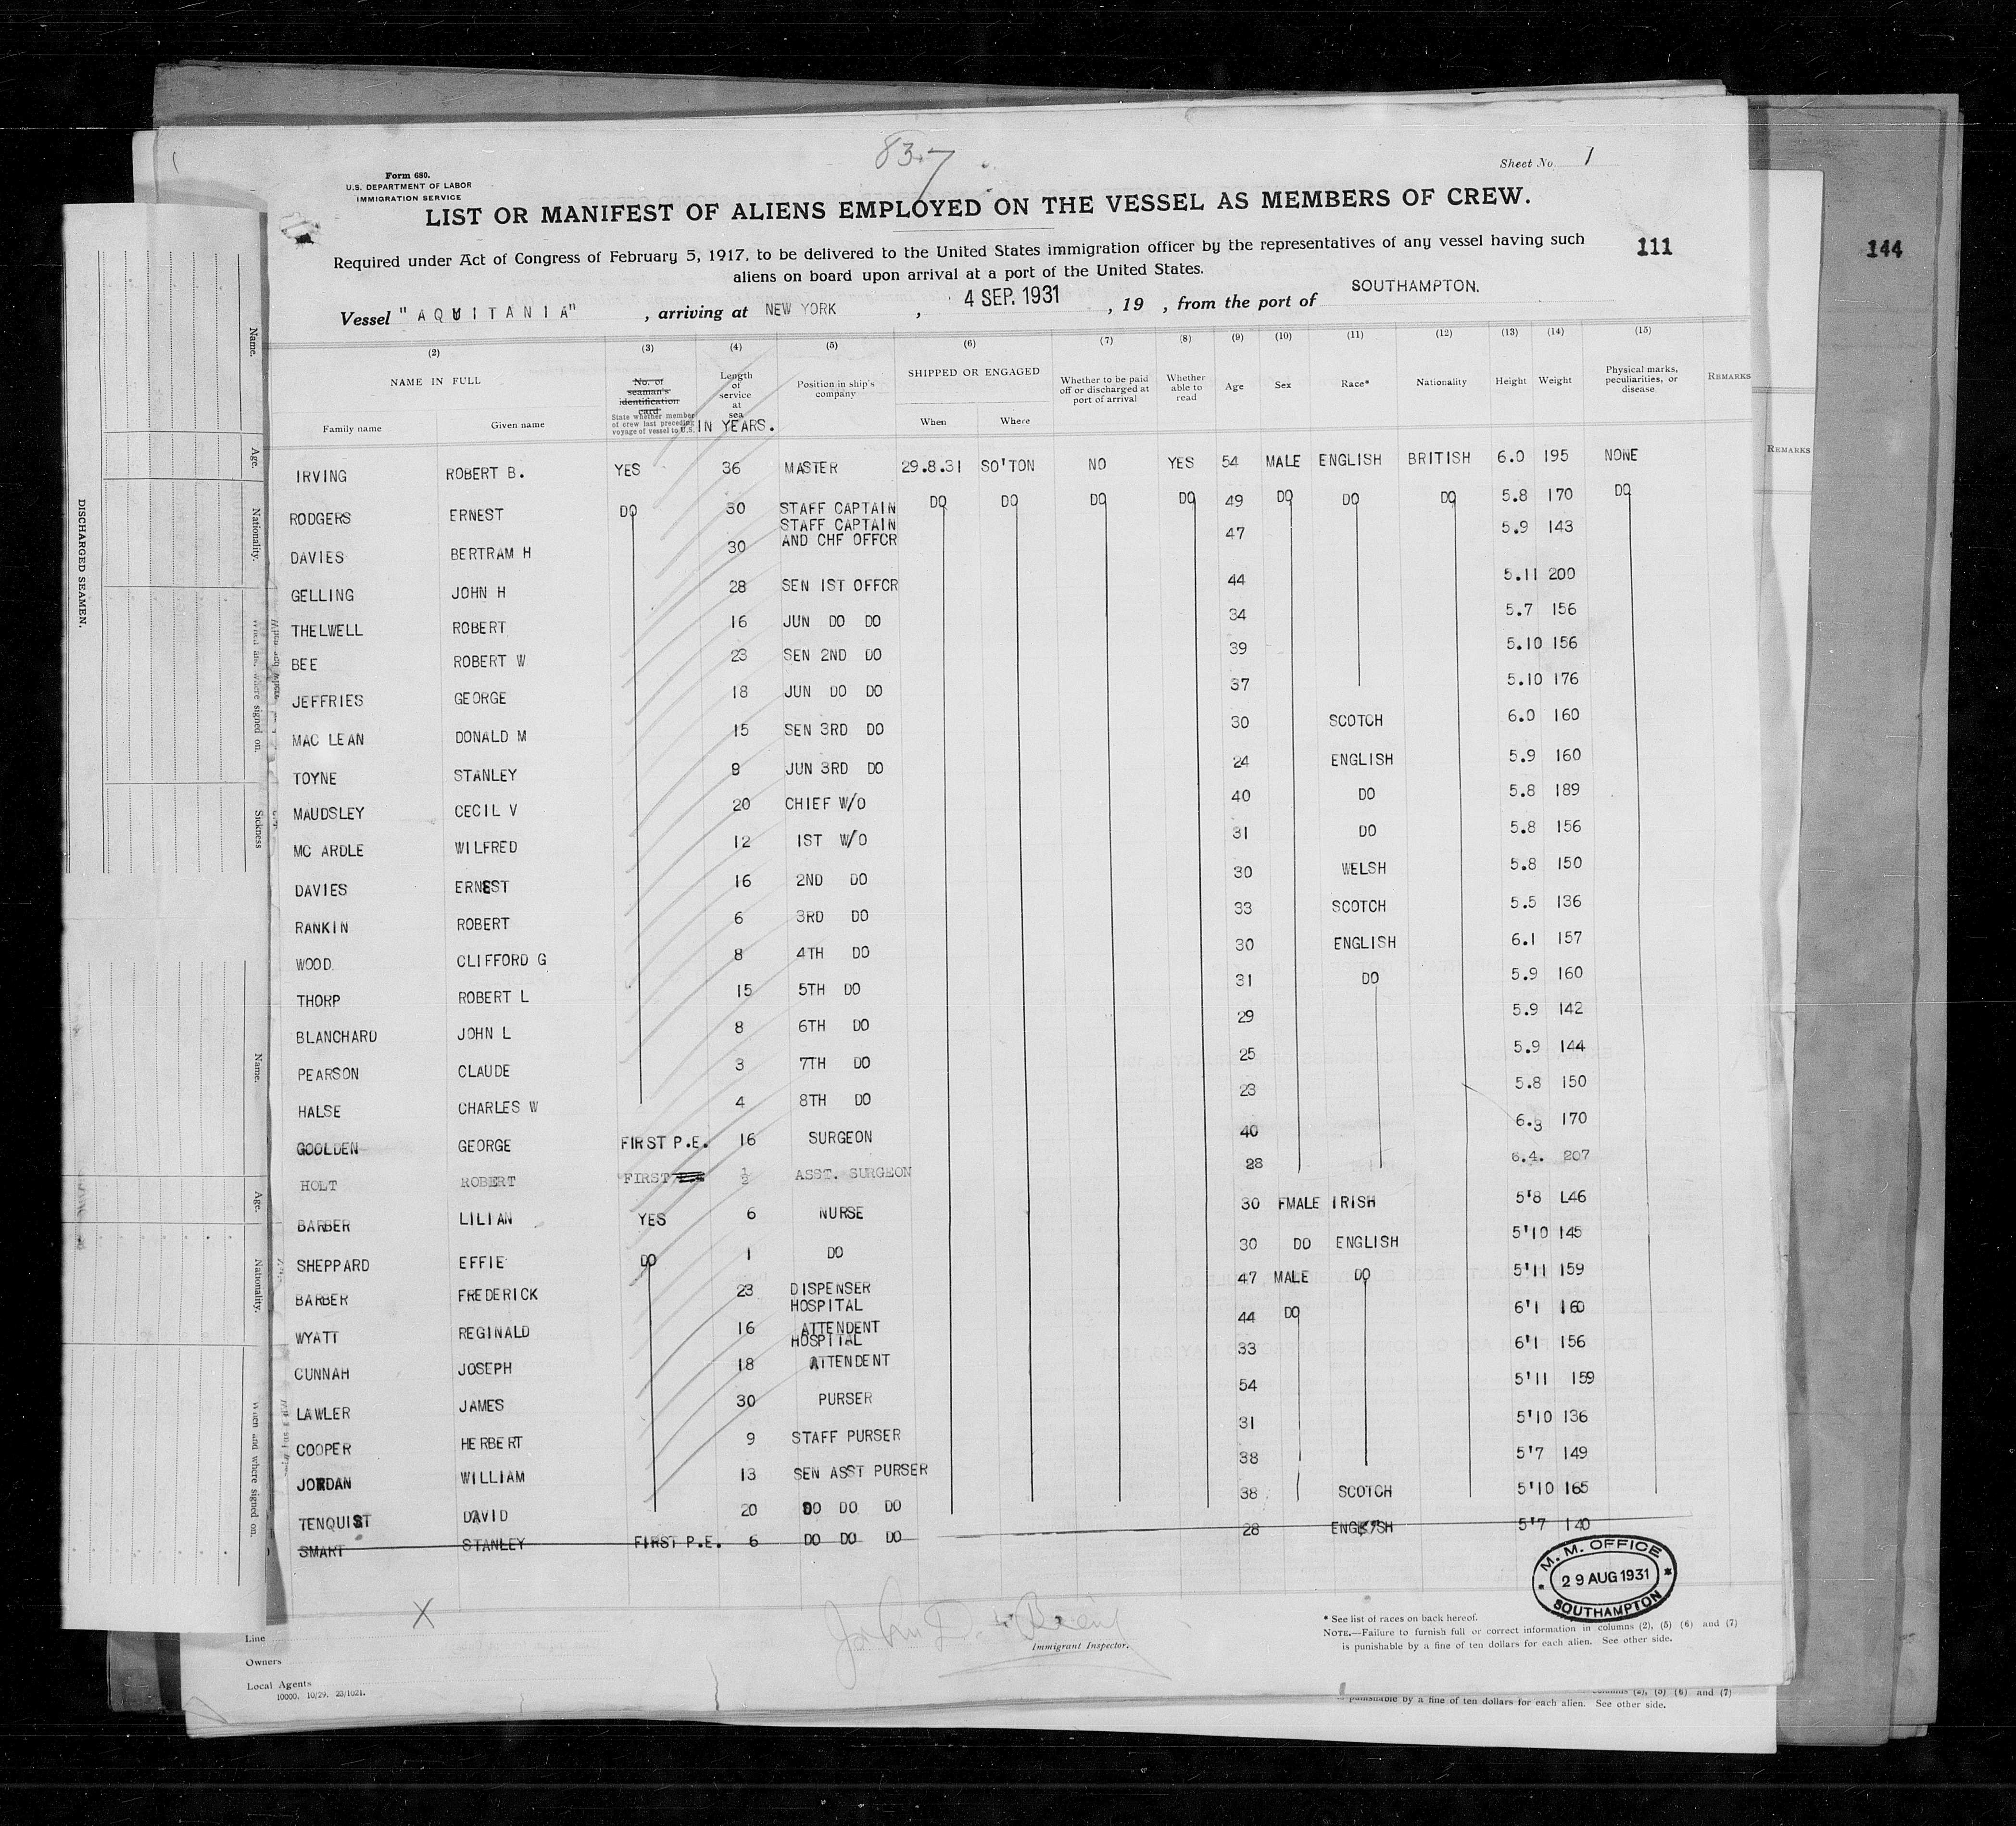 83-7
Sheet No. 1
Form 680.
U.S. DEPARTMENT OF LABOR
IMMIGRATION SERVICE
LIST OR MANIFEST OF ALIENS EMPLOYED ON THE VESSEL AS MEMBERS OF CREW.
Required under Act of Congress of February 5, 1917, to be delivered to the United States immigration officer by the representatives of any vessel having such
aliens on board upon arrival at a port of the United States.
111
144
Vessel "AQUITANIA", arriving at NEW YORK, 4 SEP. 1931, 19 , from the port of SOUTHAMPTON.
(2) (3) (4) (5) (6) (7) (8) (9) (10) (11) (12) (13) (14) (15)
NAME IN FULL
Family name
Given name
No. of seaman's identification card
State whether member of crew last preceding voyage of vessel to U.S.
Length of service at sea
IN YEARS.
Position in ship's company
SHIPPED OR ENGAGED
When
Where
Whether to be paid off or discharged at port of arrival
Whether able to read
Age
Sex
Race*
Nationality
Height
Weight
Physical marks, peculiarities, or disease
REMARKS
REMARKS
IRVING ROBERT B. YES 36 MASTER 29.8.31 SO'TON NO YES 54 MALE ENGLISH BRITISH 6.0 195 NONE
RODGERS ERNEST DO 30 STAFF CAPTAIN DO DO DO DO 49 DO DO DO 5.8 170 DO
DAVIES BERTRAM H 30 STAFF CAPTAIN AND CHF OFFCR 47 5.9 143
GELLING JOHN H 28 SEN 1ST OFFCR 44 5.11 200
THELWELL ROBERT 16 JUN DO DO 34 5.7 156
BEE ROBERT W 23 SEN 2ND DO 39 5.10 156
JEFFRIES GEORGE 18 JUN DO DO 37 5.10 176
MAC LEAN DONALD M 15 SEN 3RD DO 30 SCOTCH 6.0 160
TOYNE STANLEY 9 JUN 3RD DO 24 ENGLISH 5.9 160
MAUDSLEY CECIL V 20 CHIEF W/O 40 DO 5.8 189
MC ARDLE WILFRED 12 1ST W/O 31 DO 5.8 156
DAVIES ERNEST 16 2ND DO 30 WELSH 5.8 150
RANKIN ROBERT 6 3RD DO 33 SCOTCH 5.5 136
WOOD CLIFFORD G 8 4TH DO 30 ENGLISH 6.1 157
THORP ROBERT L 15 5TH DO 31 DO 5.9 160
BLANCHARD JOHN L 8 6TH DO 29 5.9 142
PEARSON CLAUDE 3 7TH DO 25 5.9 144
HALSE CHARLES W 4 8TH DO 23 5.8 150
GOOLDEN GEORGE FIRST P.E. 16 SURGEON 40 6.3 170
HOLT ROBERT FIRST ½ ASST. SURGEON 28 6.4. 207
BARBER LILIAN YES 6 NURSE 30 FMALE IRISH 5'8 L46
SHEPPARD EFFIE DO 1 DO 30 DO ENGLISH 5'10 145
BARBER FREDERICK 23 DISPENSER 47 MALE DO 5'11 159
WYATT REGINALD 16 HOSPITAL ATTENDENT 44 DO 6'1 160
CUNNAH JOSEPH 18 HOSPITAL ATTENDENT 33 6'1 156
LAWLER JAMES 30 PURSER 54 5'11 159
COOPER HERBERT 9 STAFF PURSER 31 5'10 136
JORDAN WILLIAM 13 SEN ASST PURSER 38 5'7 149
TENQUIST DAVID 20 DO DO DO 38 SCOTCH 5'10 165
SMART STANLEY FIRST P.E. 6 DO DO DO 28 ENGLISH 5'7 140
M. M. OFFICE
29 AUG 1931
SOUTHAMPTON
X
Immigrant Inspector.
* See list of races on back hereof.
NOTE.—Failure to furnish full or correct information in columns (2), (5) (6) and (7)
is punishable by a fine of ten dollars for each alien. See other side.
columns (2), (5) (6) and (7)
is punishable by a fine of ten dollars for each alien. See other side.
Line
Owners
Local Agents
10000. 10/29. 23/1021.
DISCHARGED SEAMEN.
Name.
Age.
Nationality.
When and where signed on.
Sickness
Name.
Age.
Nationality.
When and where signed on.